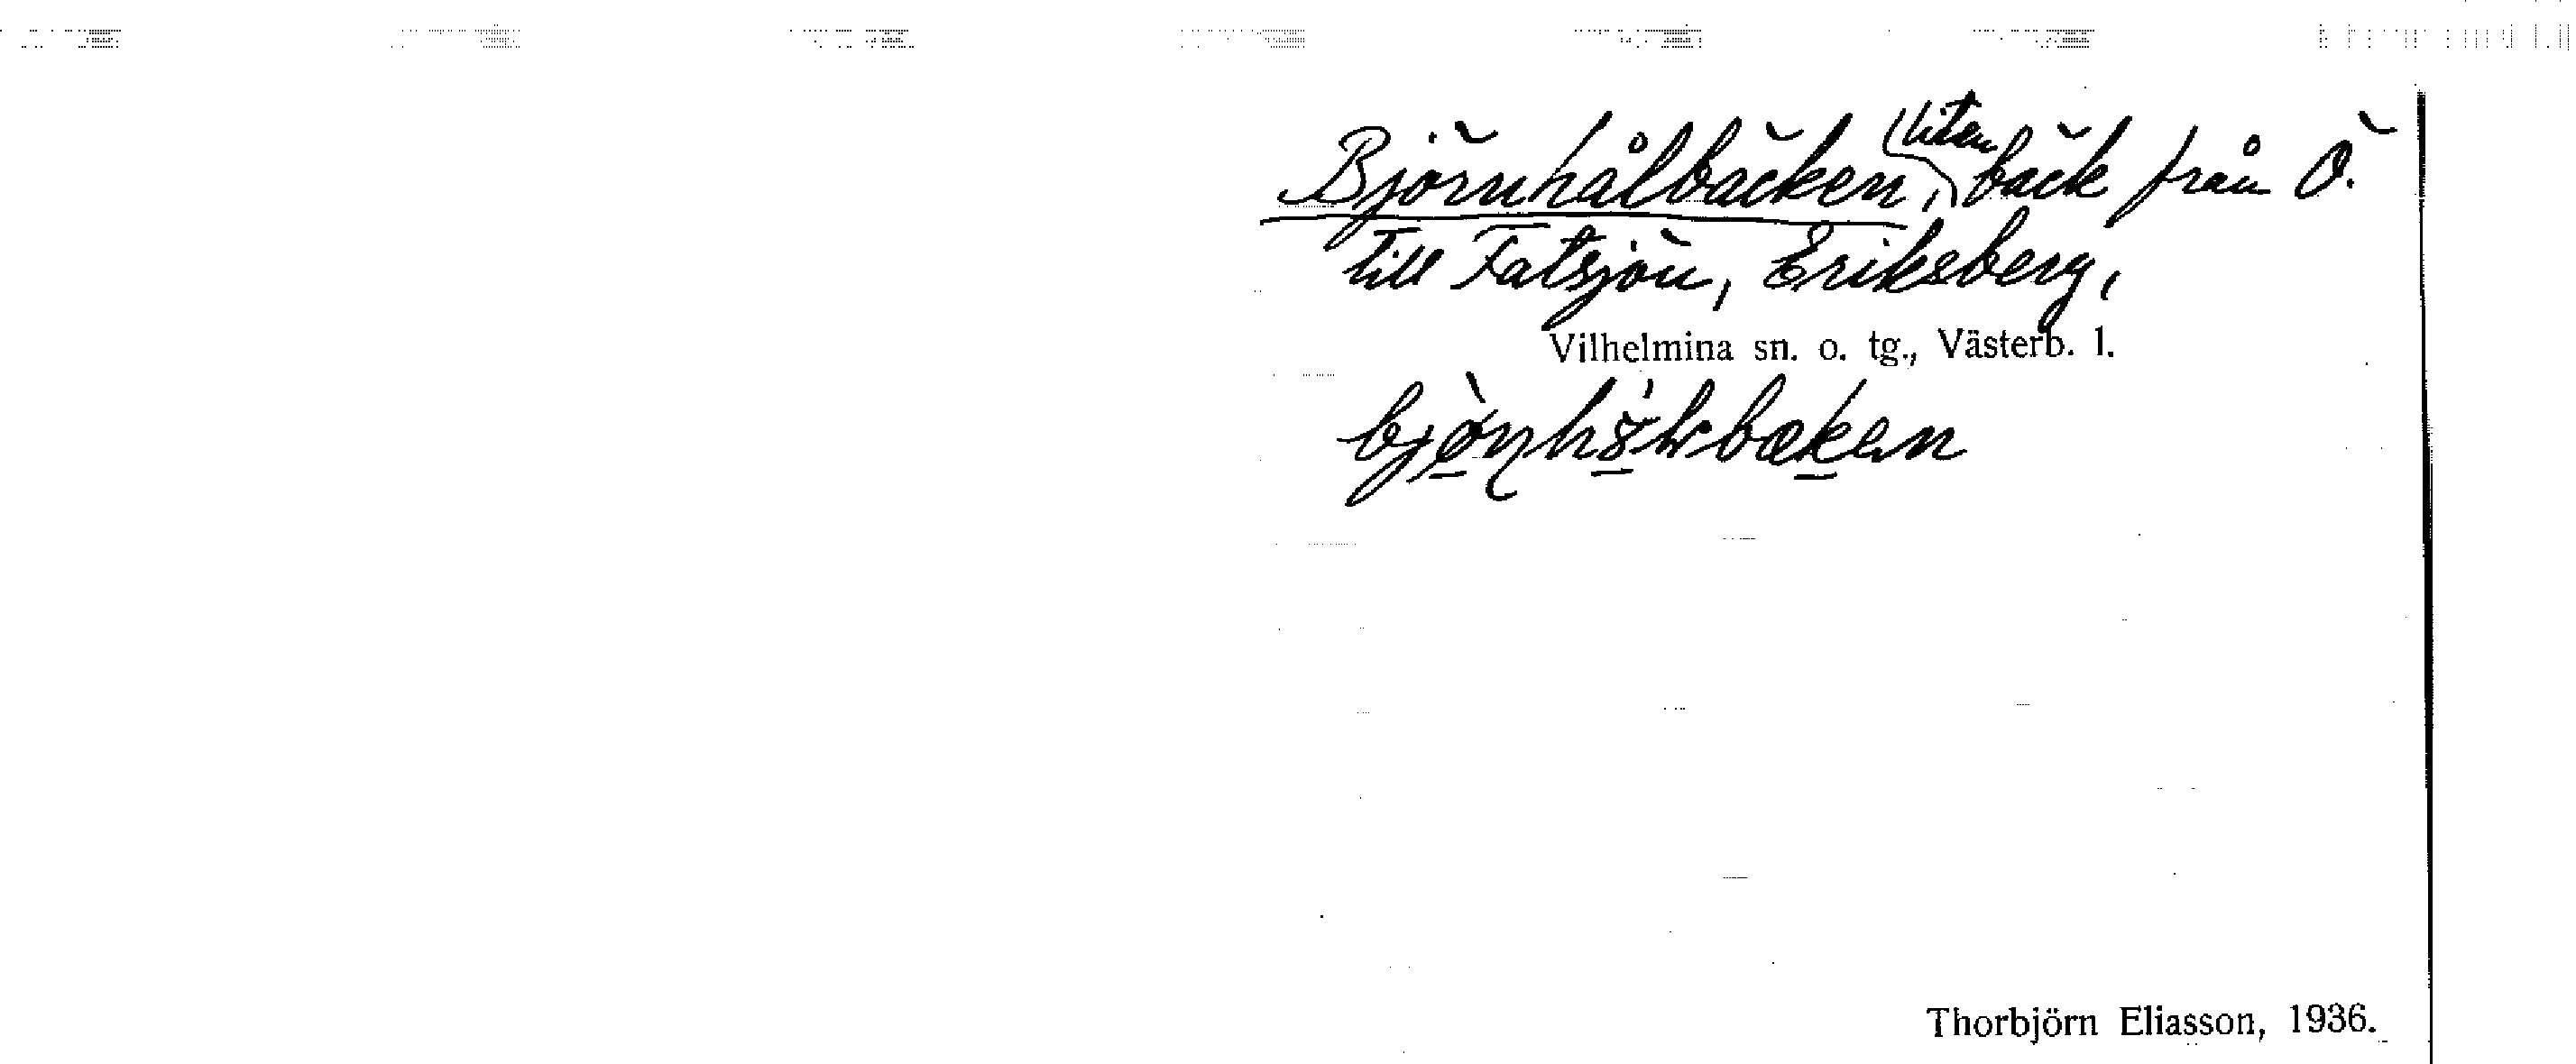 Björnhålbäcken, liten bäck från Ö.
till Fatsjön, Eriksberg,
Vilhelmina sn. o. tg., Västerb. l.
Thorbjörn Eliasson, 1936.